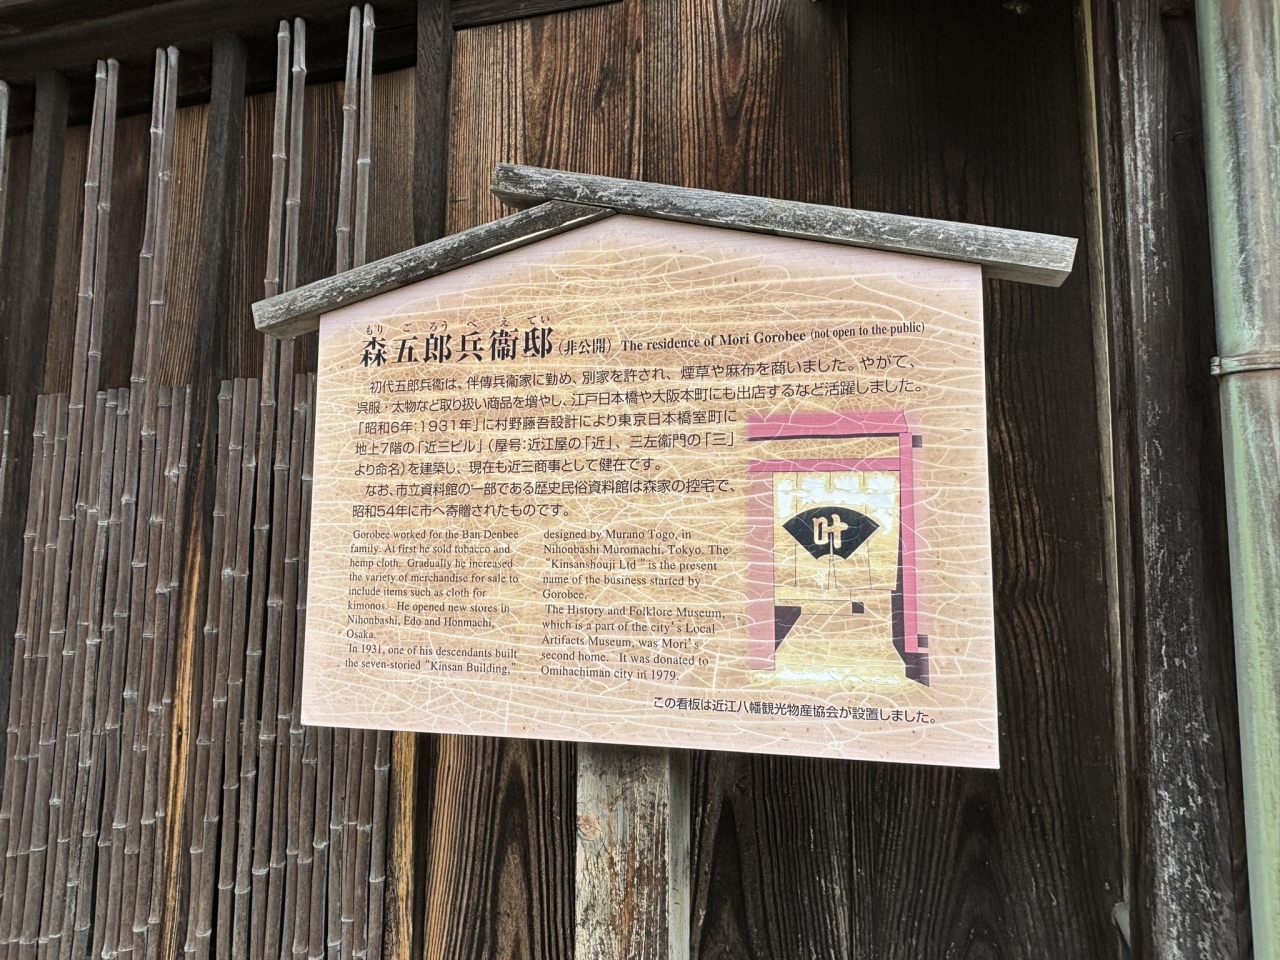 もり ご ろう べ え てい
森五郎兵衞邸(非公開) The residence of Mori Gorobee (not open to the public)
初代五郎兵衞は、伴傳兵衞家に勤め、別家を許され、煙草や麻布を商いました。やがて、
呉服・太物など取り扱い商品を増やし、江戸日本橋や大阪本町にも出店するなど活躍しました。
「昭和6年:1931年」に村野藤吾設計により東京日本橋室町に
地上7階の「近三ビル」(屋号:近江屋の「近」、三左衞門の「三」
より命名)を建築し、現在も近三商事として健在です。
なお、市立資料館の一部である歴史民俗資料館は森家の控宅で、
昭和54年に市へ寄贈されたものです。
Gorobee worked for the Ban Denbee
family. At first he sold tobacco and
hemp cloth. Gradually he increased
the variety of merchandise for sale to
include items such as cloth for
kimonos. He opened new stores in
Nihonbashi, Edo and Honmachi,
Osaka.
In 1931, one of his descendants built
the seven-storied "Kinsan Building,"
designed by Murano Togo, in
Nihonbashi Muromachi, Tokyo. The
"Kinsanshouji Ltd " is the present
name of the business started by
Gorobee.
The History and Folklore Museum,
which is a part of the city's Local
Artifacts Museum, was Mori's
second home. It was donated to
Omihachiman city in 1979.
叶
この看板は近江八幡観光物産協会が設置しました。